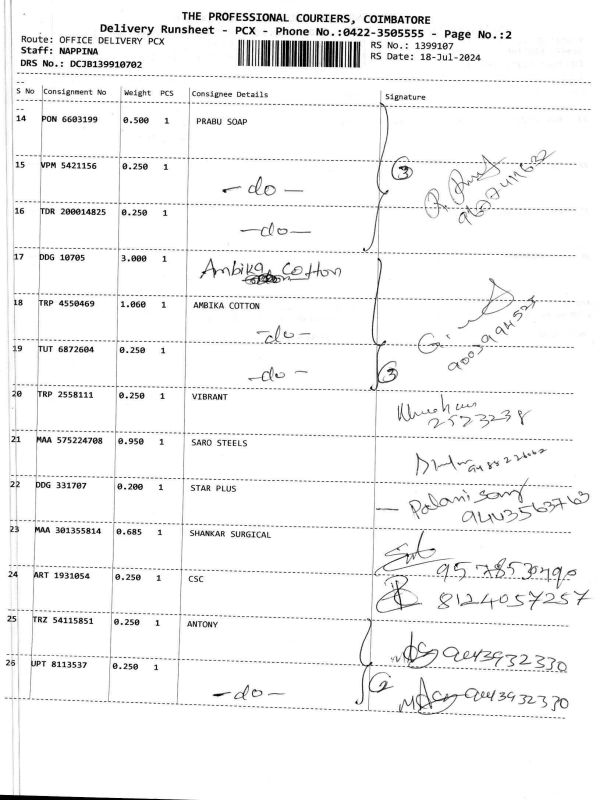 THE PROFESSIONAL COURIERS, COIMBATORE
Delivery Runsheet - PCX - Phone No.:0422-3505555 - Page No.:2
Route: OFFICE DELIVERY PCX
RS No.: 1399107
Staff: NAPPINA
RS Date: 18-Jul-2024
DRS No.: DCJB139910702
S No Consignment No Weight PCS Consignee Details Signature
14 PON 6603199 0.500 1 PRABU SOAP
15 VPM 5421156 0.250 1
-do- 3
16 TDR 200014825 0.250 1
-do-
17 DDG 10705 3.000 1 Ambika Cotton
18 TRP 4550469 1.060 1 AMBIKA COTTON
-do-
19 TUT 6872604 0.250 1
-do- 3
20 TRP 2558111 0.250 1 VIBRANT
2523238
21 MAA 575224708 0.950 1 SARO STEELS
22 DDG 331707 0.200 1 STAR PLUS
9443563763
23 MAA 301355814 0.685 1 SHANKAR SURGICAL
9578530490
24 ART 1931054 0.250 1 CSC
8124057257
25 TRZ 54115851 0.250 1 ANTONY
9443932330
26 UPT 8113537 0.250 1
-do- 2 9443932330